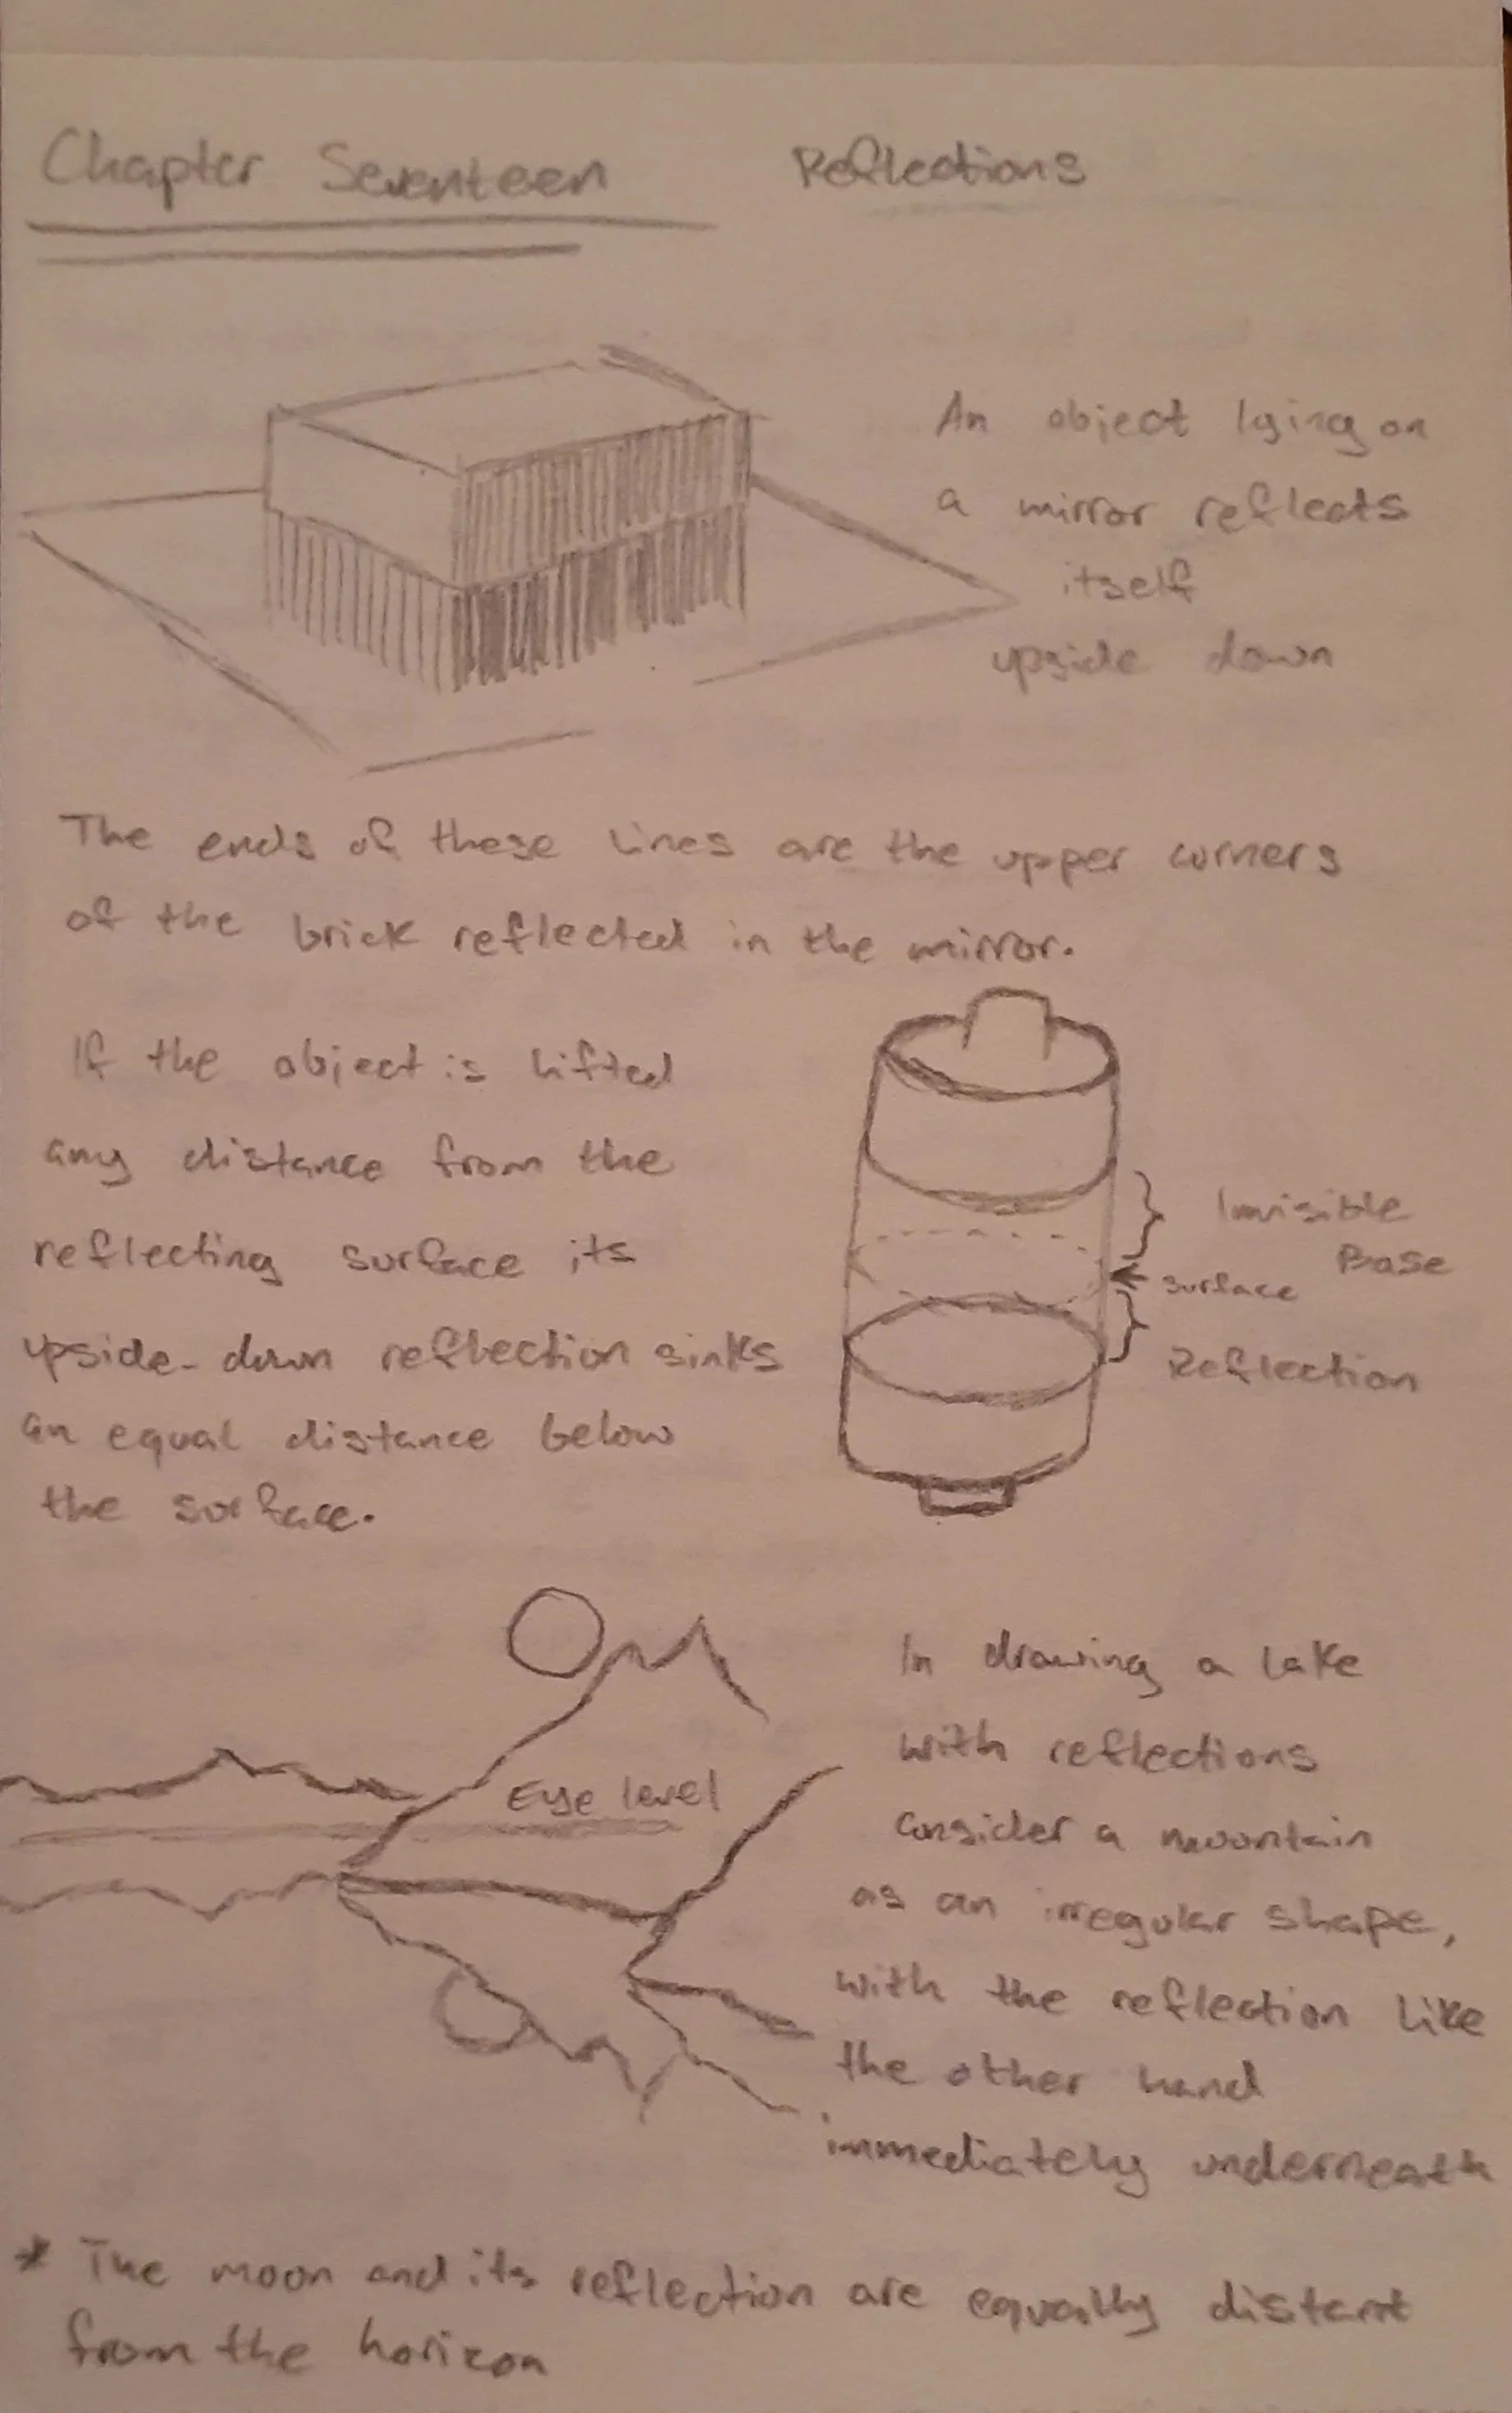 Chapter Seventeen Reflections
An object lying on
a mirror reflects
itself
upside down
The ends of these lines are the upper corners
of the brick reflected in the mirror.
If the object is lifted
any distance from the
reflecting surface its
upside-down reflection sinks
an equal distance below
the surface.
Invisible
Base
surface
Reflection
Eye level
In drawing a lake
with reflections
consider a mountain
as an irregular shape,
with the reflection like
the other hand
immediately underneath
* The moon and its reflection are equally distant
from the horizon